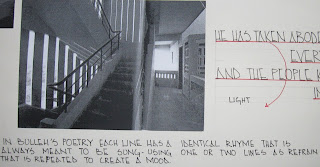 HE HAS TAKEN ABODE
EVERY
AND THE PEOPLE
IN
LIGHT
IN BULLEH'S POETRY EACH LINE HAS A IDENTICAL RHYME THAT IS
ALWAYS MEANT TO BE SUNG - USING ONE OR TWO LINES AS REFRAIN
THAT IS REPEATED TO CREATE A MOOD